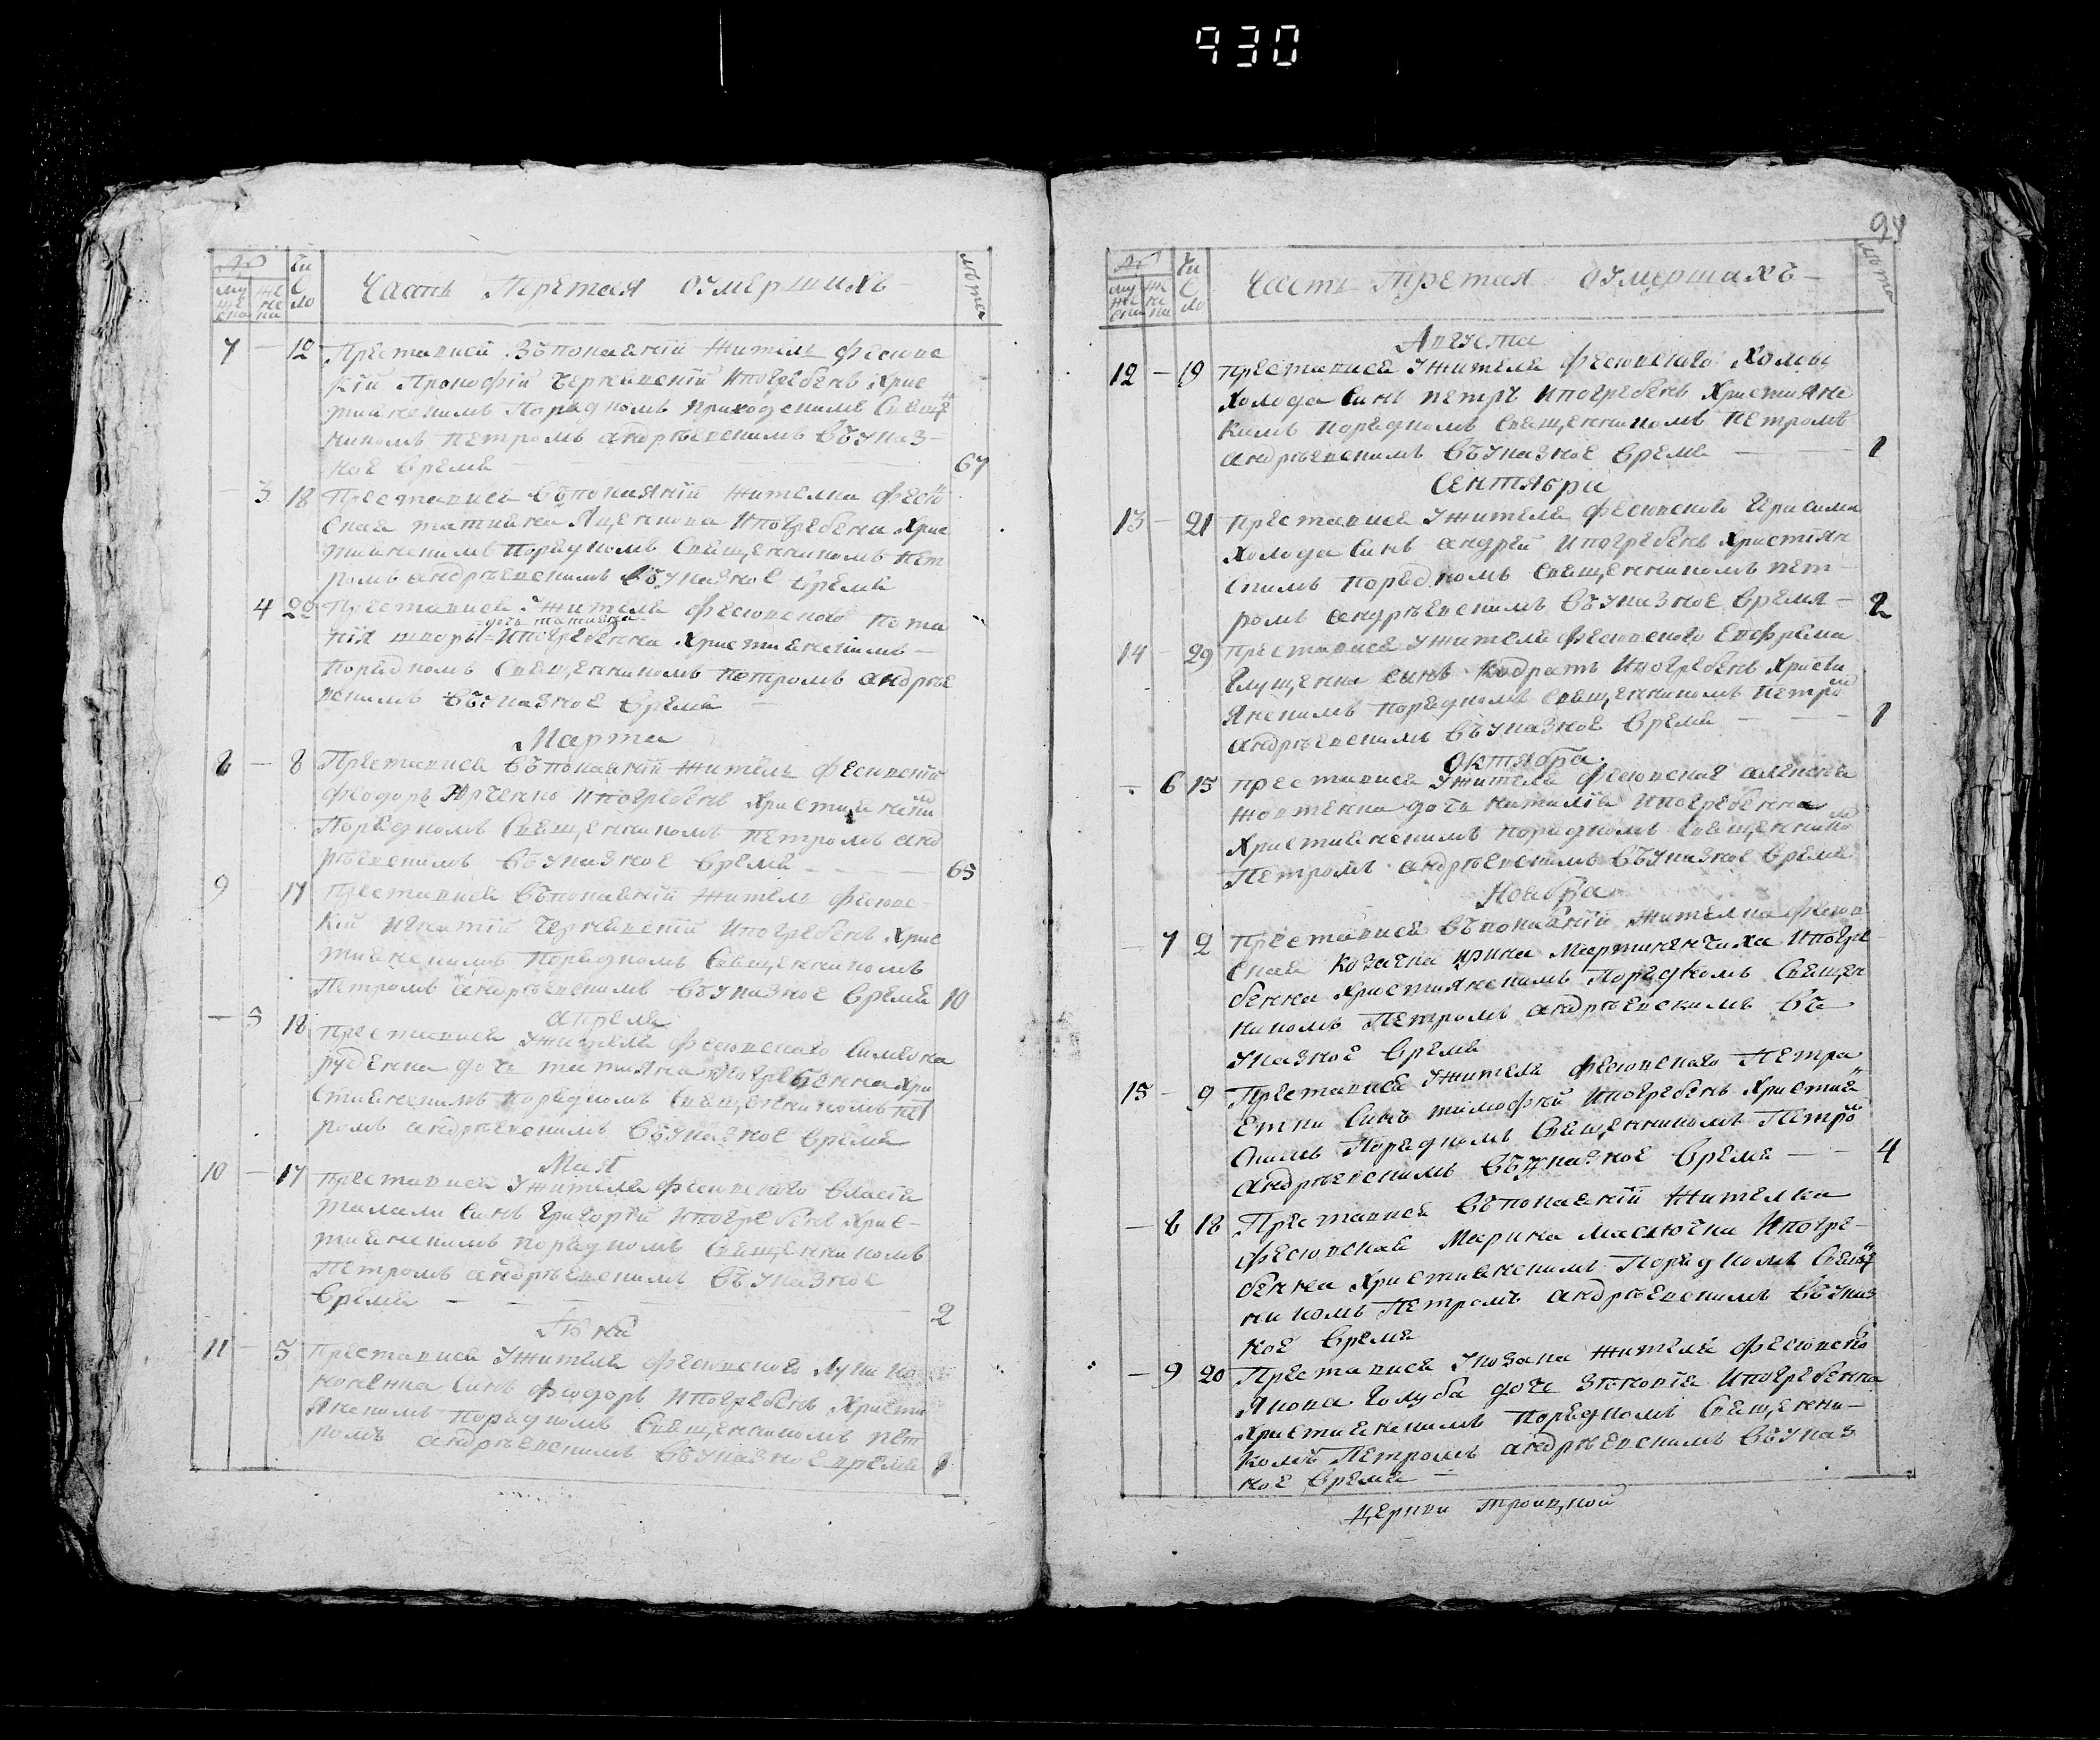 930
№ Чи Часть Третая оумершихъ лѣта
му же с
же не ло
ска ка
7 — 12 Преставися Въпокаянїи житель фесювс
кїй Прокофїй Чернявскїй Ипогребенъ Хрис
тиянскимъ Порядкомъ Приходскимъ Священ
никомъ Петромъ андрѣевскимъ Въуказ-
ное время 67
— 3 18 Преставися Въпокаянїи жителка фесюв
ская татияна Яценкова Ипогребена Хрис
тиянскимъ Порядкомъ Священникомъ Пет
ромъ андрѣевскимъ Въуказное время
4 22 Преставися Ужителя фесювского
-дочь татияна-
Ипогребенна Християнскимъ —
Порядкомъ Священникомъ Петромъ андрѣе
вскимъ Въуказное время —
Марта
8 — 8 Преставися Въпокаянїи житель фесювскїй
феодоръ Ипогребенъ Християнским
Порядкомъ Священникомъ Петромъ анд
рѣевскимъ Въуказное время — — 65
9 17 Преставися Въпокаянїи житель фесювс-
кїй игнатїй Чернявскїй Ипогребенъ Хрис
тиянскимъ Порядкомъ Священникомъ
Петромъ андрѣевскимъ Въуказное время 10
апреля
— 5 18 Преставися Ужителя фесювского Симеона
руденка дочь татияна Ипогребенна Хри
стиянскимъ Порядкомъ Священникомъ Пет
ромъ андрѣевскимъ Въуказное время
Мая
10 — 17 Преставися Ужителя фесювского власїя
Синъ Григорїй Ипогребенъ Хрис-
тиянскимъ порядкомъ Священникомъ
Петромъ андрѣевскимъ Въуказное
Время — — — 2
Іюня
11 — 5 Преставися Ужителя фесювского Луки ко
Синъ феодоръ Ипогребенъ Христи
янскимъ Порядкомъ Священникомъ Пет
ромъ андрѣевскимъ Въуказное время 1
94
№ Чи Часть Третая оумершихъ — лѣта
му же с
же не ло
ска ка
Августа
12 — 19 Преставися Ужителя фесювского Хомы
Холода Синъ Петръ Ипогребенъ Християнс
кимъ порядкомъ Священникомъ Петромъ
андрѣевскимъ Въуказное время — — 1
Сентября
13 — 21 Преставися Ужителя фесювского Герасима
Холода Синъ андрей Ипогребенъ Християн
скимъ порядкомъ Священникомъ Пет-
ромъ андрѣевскимъ Въуказное время — 2
14 — 29 Преставися Ужителя фесювского Евфрема
Глущенка Синъ Кодратъ Ипогребенъ Христи
янскимъ порядкомъ Священникомъ Петром
андрѣевскимъ Въуказное время — — — 1
Октября
— 6 15 Преставися Ужителя фесювския
Жовтенка дочь наталїя Ипогребенна
Християнскимъ порядкомъ Священником
Петромъ андрѣевскимъ Въуказное время
Ноября
— 7 2 Преставися Въпокаянїи жителка фесюв
ская козачка ирина Мартиненчиха Ипогре
бенна Християнскимъ Порядкомъ Священ
никомъ Петромъ андрѣевскимъ Въ
указное время
15 — 9 Преставися Ужителя фесювского Петра
Синъ тимофей Ипогребенъ Християн
скимъ Порядкомъ Священникомъ Петром
андрѣевскимъ Въуказное время — — 4
— 8 18 Преставися Въпокаянїи жителка
фесювская Марина Маслючка Ипогре-
бенна Християнскимъ Порядкомъ Свящ
никомъ Петромъ андрѣевскимъ Въуказ
ное время
— 9 20 Преставися Укозака жителя фесювско
Якова Голуба дочь зѣновїя Ипогребенна
Християнскимъ Порядкомъ Священни-
комъ Петромъ андрѣевскимъ Въуказ
ное время —
Церкви Троицкой